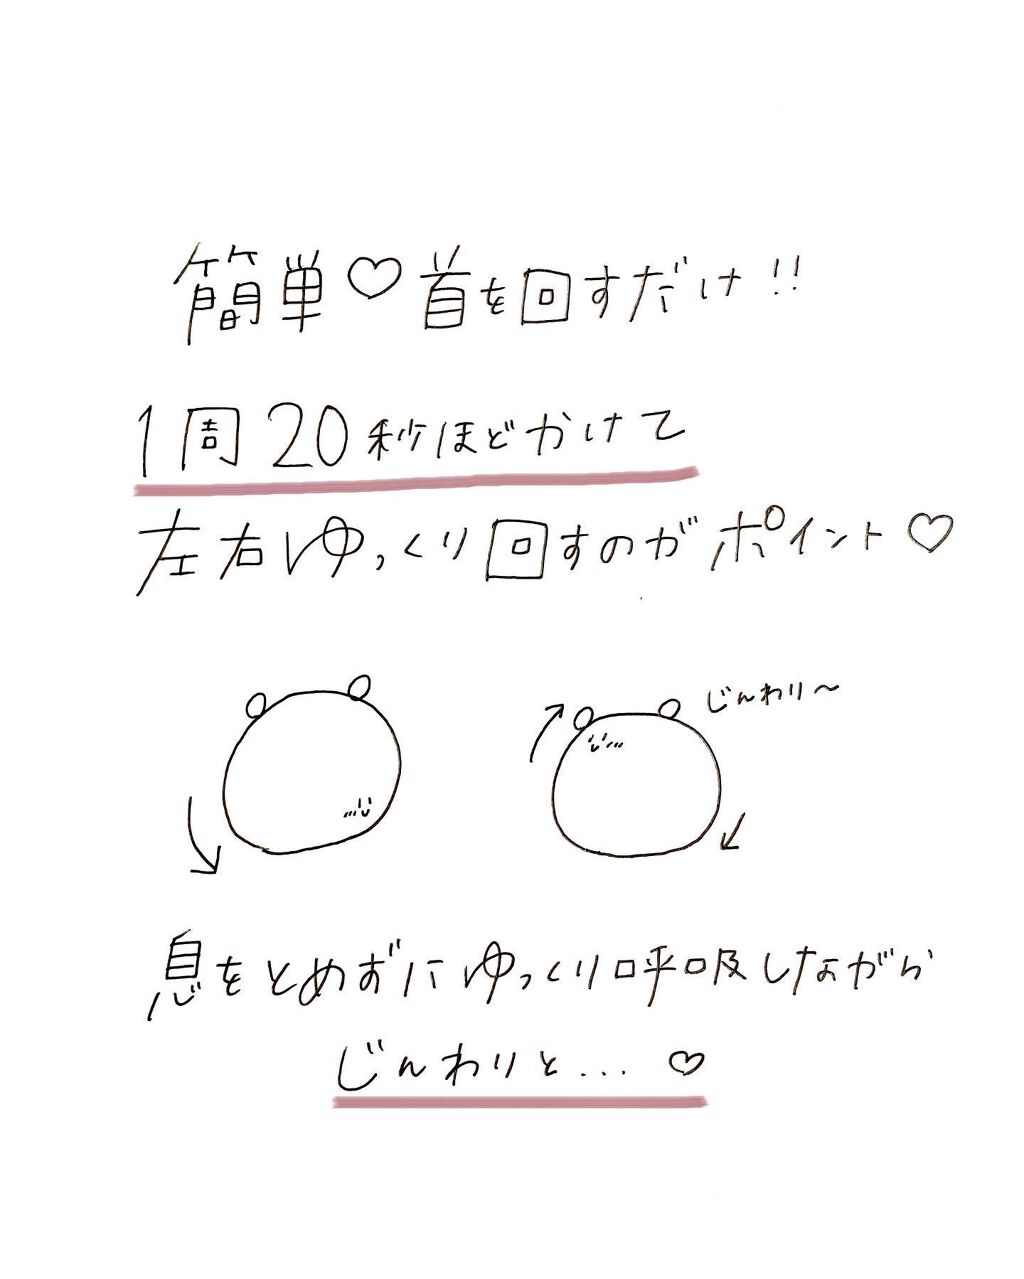 簡単♡首を回すだけ!!
1周20秒ほどかけて
左右ゆっくり回すのがポイント♡
じんわり〜
息をとめずにゆっくり呼吸しながら
じんわりと...♡